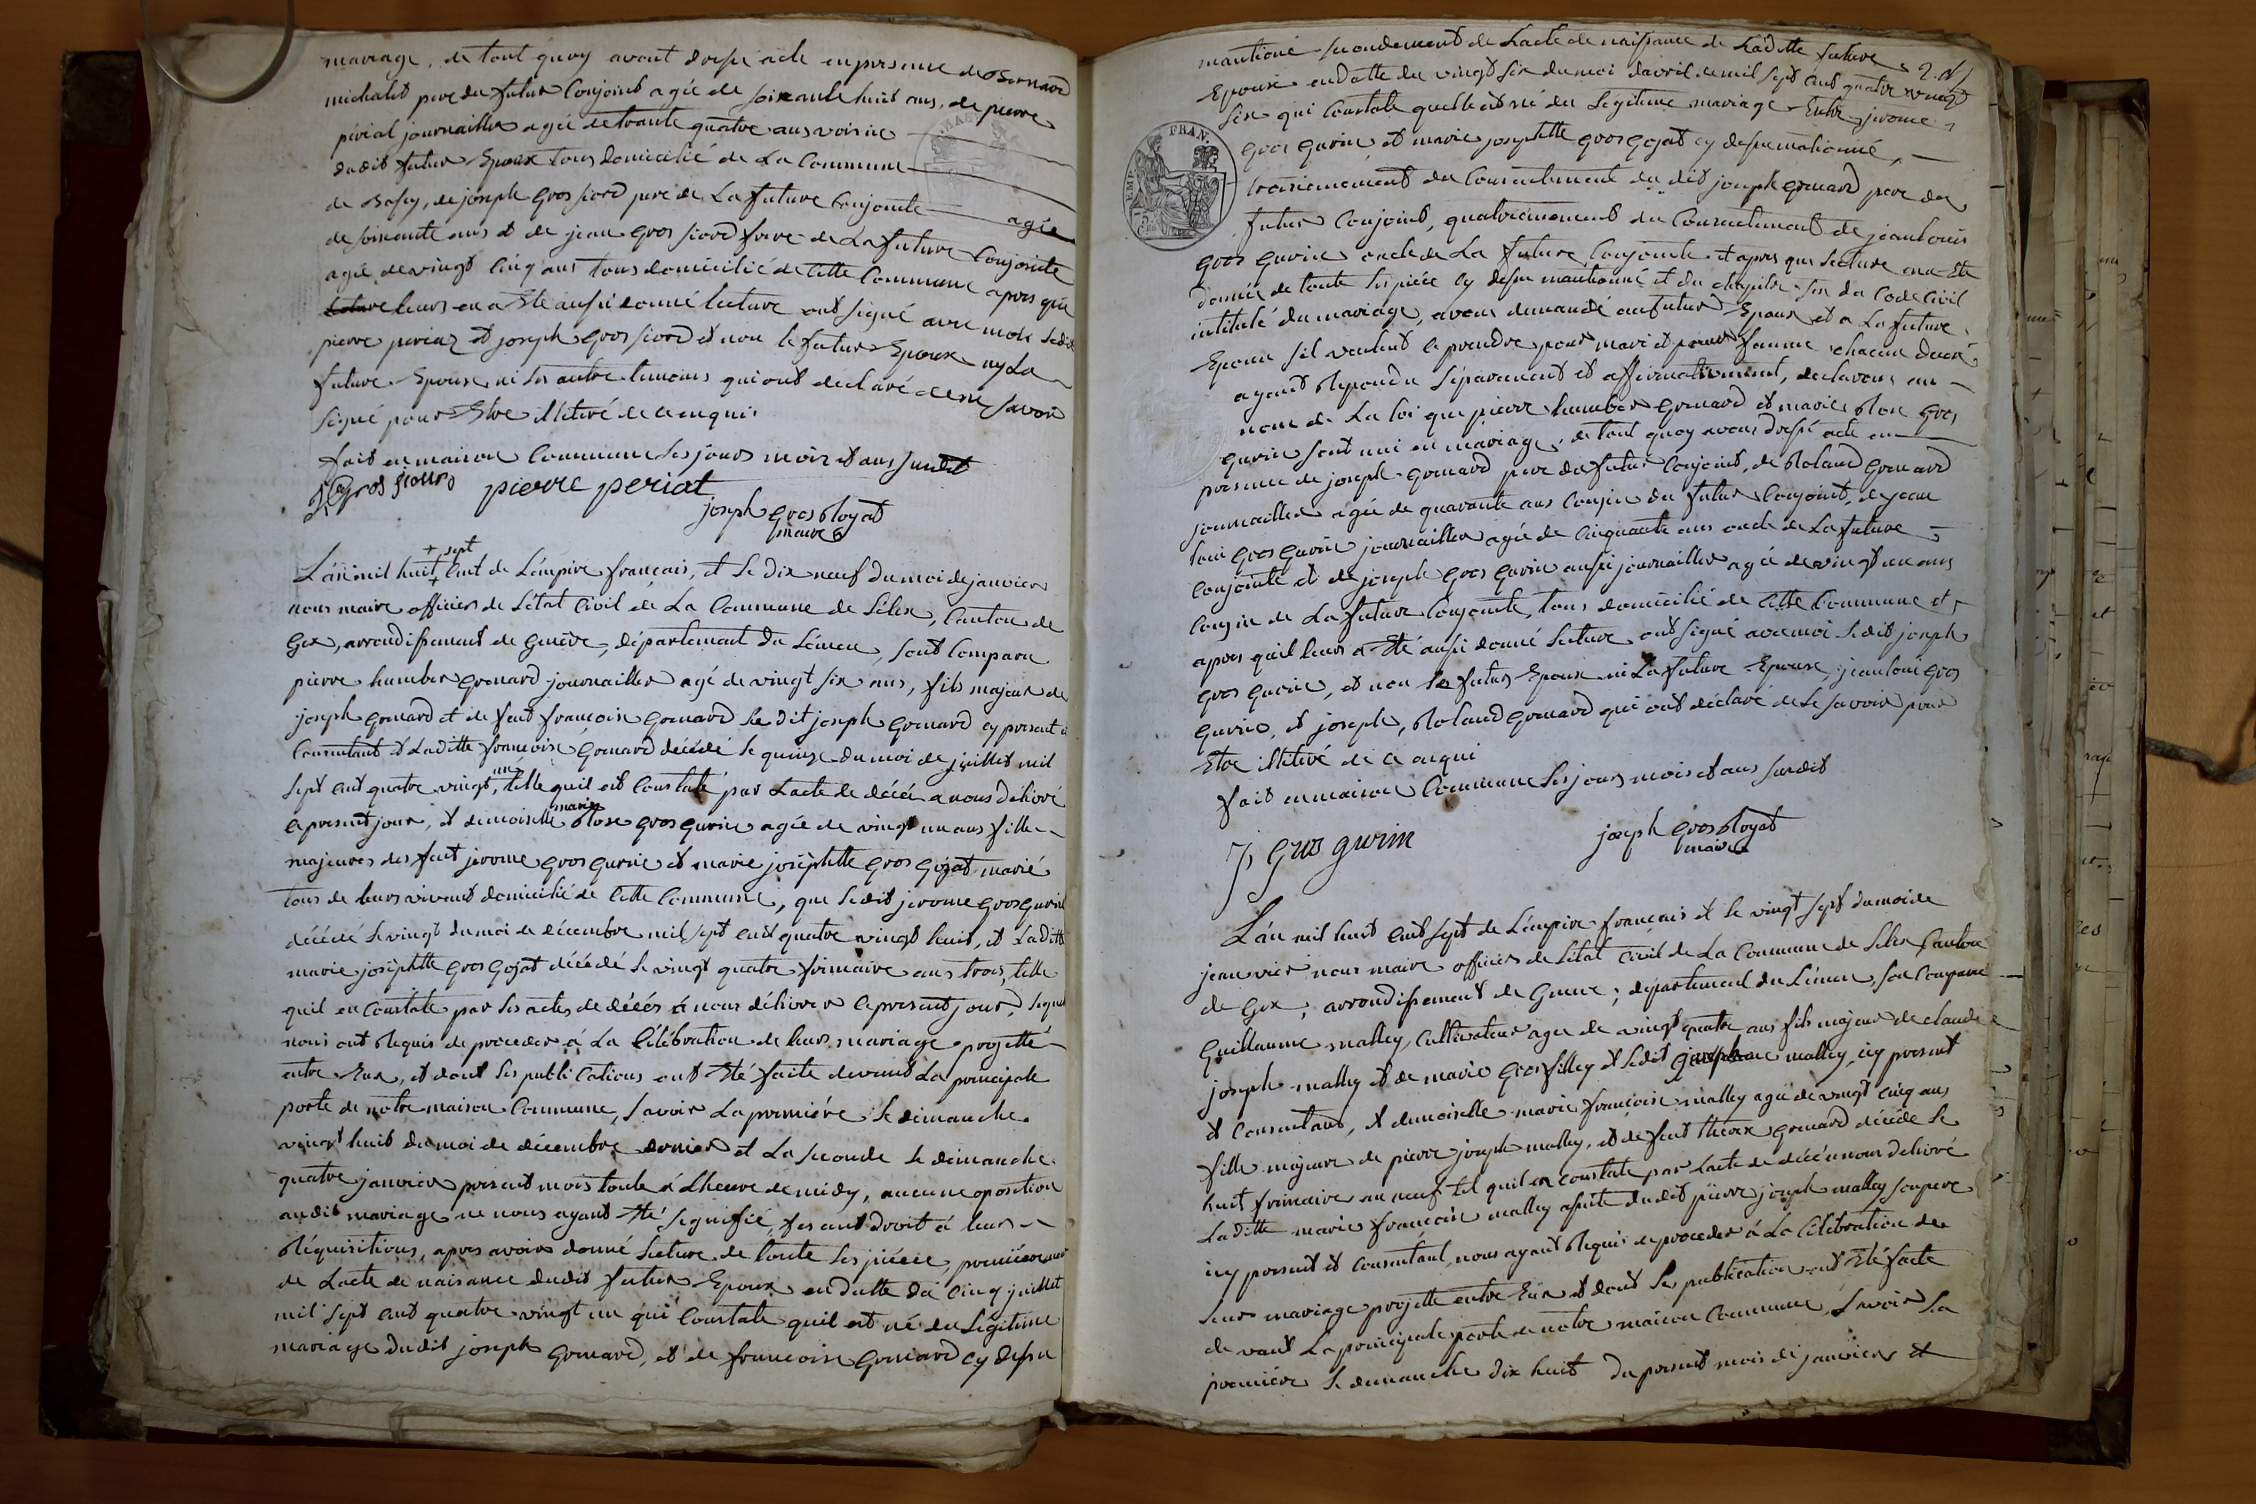 mariage, de tout quoy avont dressé acte en presence de Bernard
michalet pere du futur Conjoint agée de soixante huit ans, de pierre
périat journaillier agée de trante quatre ans voisin
dudit futur Epoux tous domicilié de La Commune
de , de joseph Gros fiord pere de La future Conjointe agée
de soixante ans et de jean Gros fiord frere de La future Conjointe
agée de vingt Cinq ans tous domicilié de Cette Commune apres que
leurs en a Eté ausi donné lecture ont signé avec moi Ledit
pierre periaz et joseph Gros fiord et non le futur Epoux ny La
future Epouse ni les autre temoins qui ont déclaré de ne savoir
signé pour Etre illitéré de ce enquis
fait en maison Commune Les jours mois et ans susdit
J Gros fiours pierre periat
joseph Gros Royat
maire
L'an mil huit + sept Cent de L'empire français, et Le dix neuf du moi de janvier
nous maire officier de L'état Civil de La Commune de Lélex, Canton de
Gex, arrondissement de Genève, département du Léman, sont Comparu
pierre humber Gronard journaillier agé de vingt six ans, fils majeur de
joseph Gonard et de feut francoise Gonard Le dit joseph Gonard cy present et
Consentant et Laditte francoise Gonard décédé le quinze du moi de juillet mil
sept cent quatre vingt, un telle quil est Constaté par Lacte de décée a nous délivré
ce present jour, et demoiselle marie Rose Gros Gurin agée de vingt un ans fille
majeures des feut jerome Gros Gurin et marie joséphtte Gros Gojat marié
tous de leurs vivant domicilié de Cette Commune, que Ledit jerome Gros Gurin
décédé Le vingt du moi de décembre mil sept cent quatre vingt huit, et Laditte
marie joséphtte Gros Gojat décédé Le vingt quatre frimaire ans trois, telle
quil en Constate par Les actes de décés à nous délivrer ce present jour, Lequel
nous ont Requis de proceder à La Célébration de leurs mariage projetté
entre Eux, et dont Les publications ont Eté faite devant La principale
porte de notre maison Commune, savoir La première Le dimanche
vingt huit du moi de décembre dernier et La seconde Le dimanche
quatre janvier present mois toute à Lheure de midy, aucune oposition
audit mariage ne nous ayant Eté signifié, fesant droit à leurs
Réquisitions, apres avoir donné Lecture de toute Les piéces, premièrement
de Lacte de naisance dudit futur Epoux en datte du Cinq juillet
mil sept cent quatre vingt un qui Constate quil est né du Légitime
mariage dudit joseph Gonard, et de francoise Gonard cy desu
mantioné secondement de Lacte de naissance de Laditte future
Epouse en datte du vingt six du moi d'avril de mil sept cent quatre vingt
six qui Constate quelle est né du Légitime mariage Entre jerome
Gros Gurin et marie josephtte Gros Gojat cy desu mationné,
troisiemement du Consentement du dit joseph Gonard pere du
futur Conjoint, quatriemement du Consentement de jean Louis
Gros Gurin oncle de La future Conjointe et apres que Lecture en a Eté
donnée de toute Les piéce cy desu mantionné et du chapitre six du Code Civil
intitulé du mariage, avons demandé au futur Epoux et a La future
Epouse s'il veulent ce prendre pour mari et pour famme, chacun deux
ayant Repondu séparament et affirmativement, declarons au
nom de La loi que pierre humber Gonard et marie Rose Gros
Gurin sont uni en mariage, de tout quoy avons dressé acte en
presence de joseph Gonard pere du futur Conjoint, de Roland Gonard
journaillier agée de quarante ans Cousin du futur Conjoint, de jean
Loui Gros Gurin journaillier agée de Cinquante ans oncle de La future
Conjointe et de joseph Gros Gurin ausi journaillier agée de vingt un ans
Cousin de La future Conjointe, tous domicilié de Cette Commune et
apres quil leurs a Eté ausi donné Lecture ont signé avec moi Ledit joseph
Gros Gurin, et non Le futur Epoux ni La future Epouse, jean Loui Gros
Gurin, et joseph, Roland Gonard qui ont déclaré de Le savoir pour
Etre illitéré de ce enqui
fait en maison Commune Les jours mois et ans susdit
J, Gros gurin joseph Gros Royat
maire
L'an mil huit cent sept de L'empire français et le vingt sept du moi de
jeanvier nous maire officier de L'état Civil de La Commune de Lélex Canton
de Gex, arrondissement de Geneve, département du Léman, son Comparu
Guillaume malley Cultivateur agée de vingt quatre ans fils majeur de claude
joseph malley et de marie Gros filley et Ledit joseph malley, icy present
et Consentant, et demoiselle marie francoise malley agée de vingt Cinq ans
fille majeure de pierre joseph malley, et de feut Gonard décédé le
huit frimaire an neuf tel quil en constate par Lacte de décée a nous delivré
Laditte marie francoise malley dudit pierre joseph malley son pere
icy present et Consentant, nous ayant Requis de proceder à La Célébration de
leur mariage projetté entre Eux et dont Les publication ont Eté faite
devant La principale porte de notre maison Commune, Savoir La
première Le dimanche dix huit du present mois de janvier et